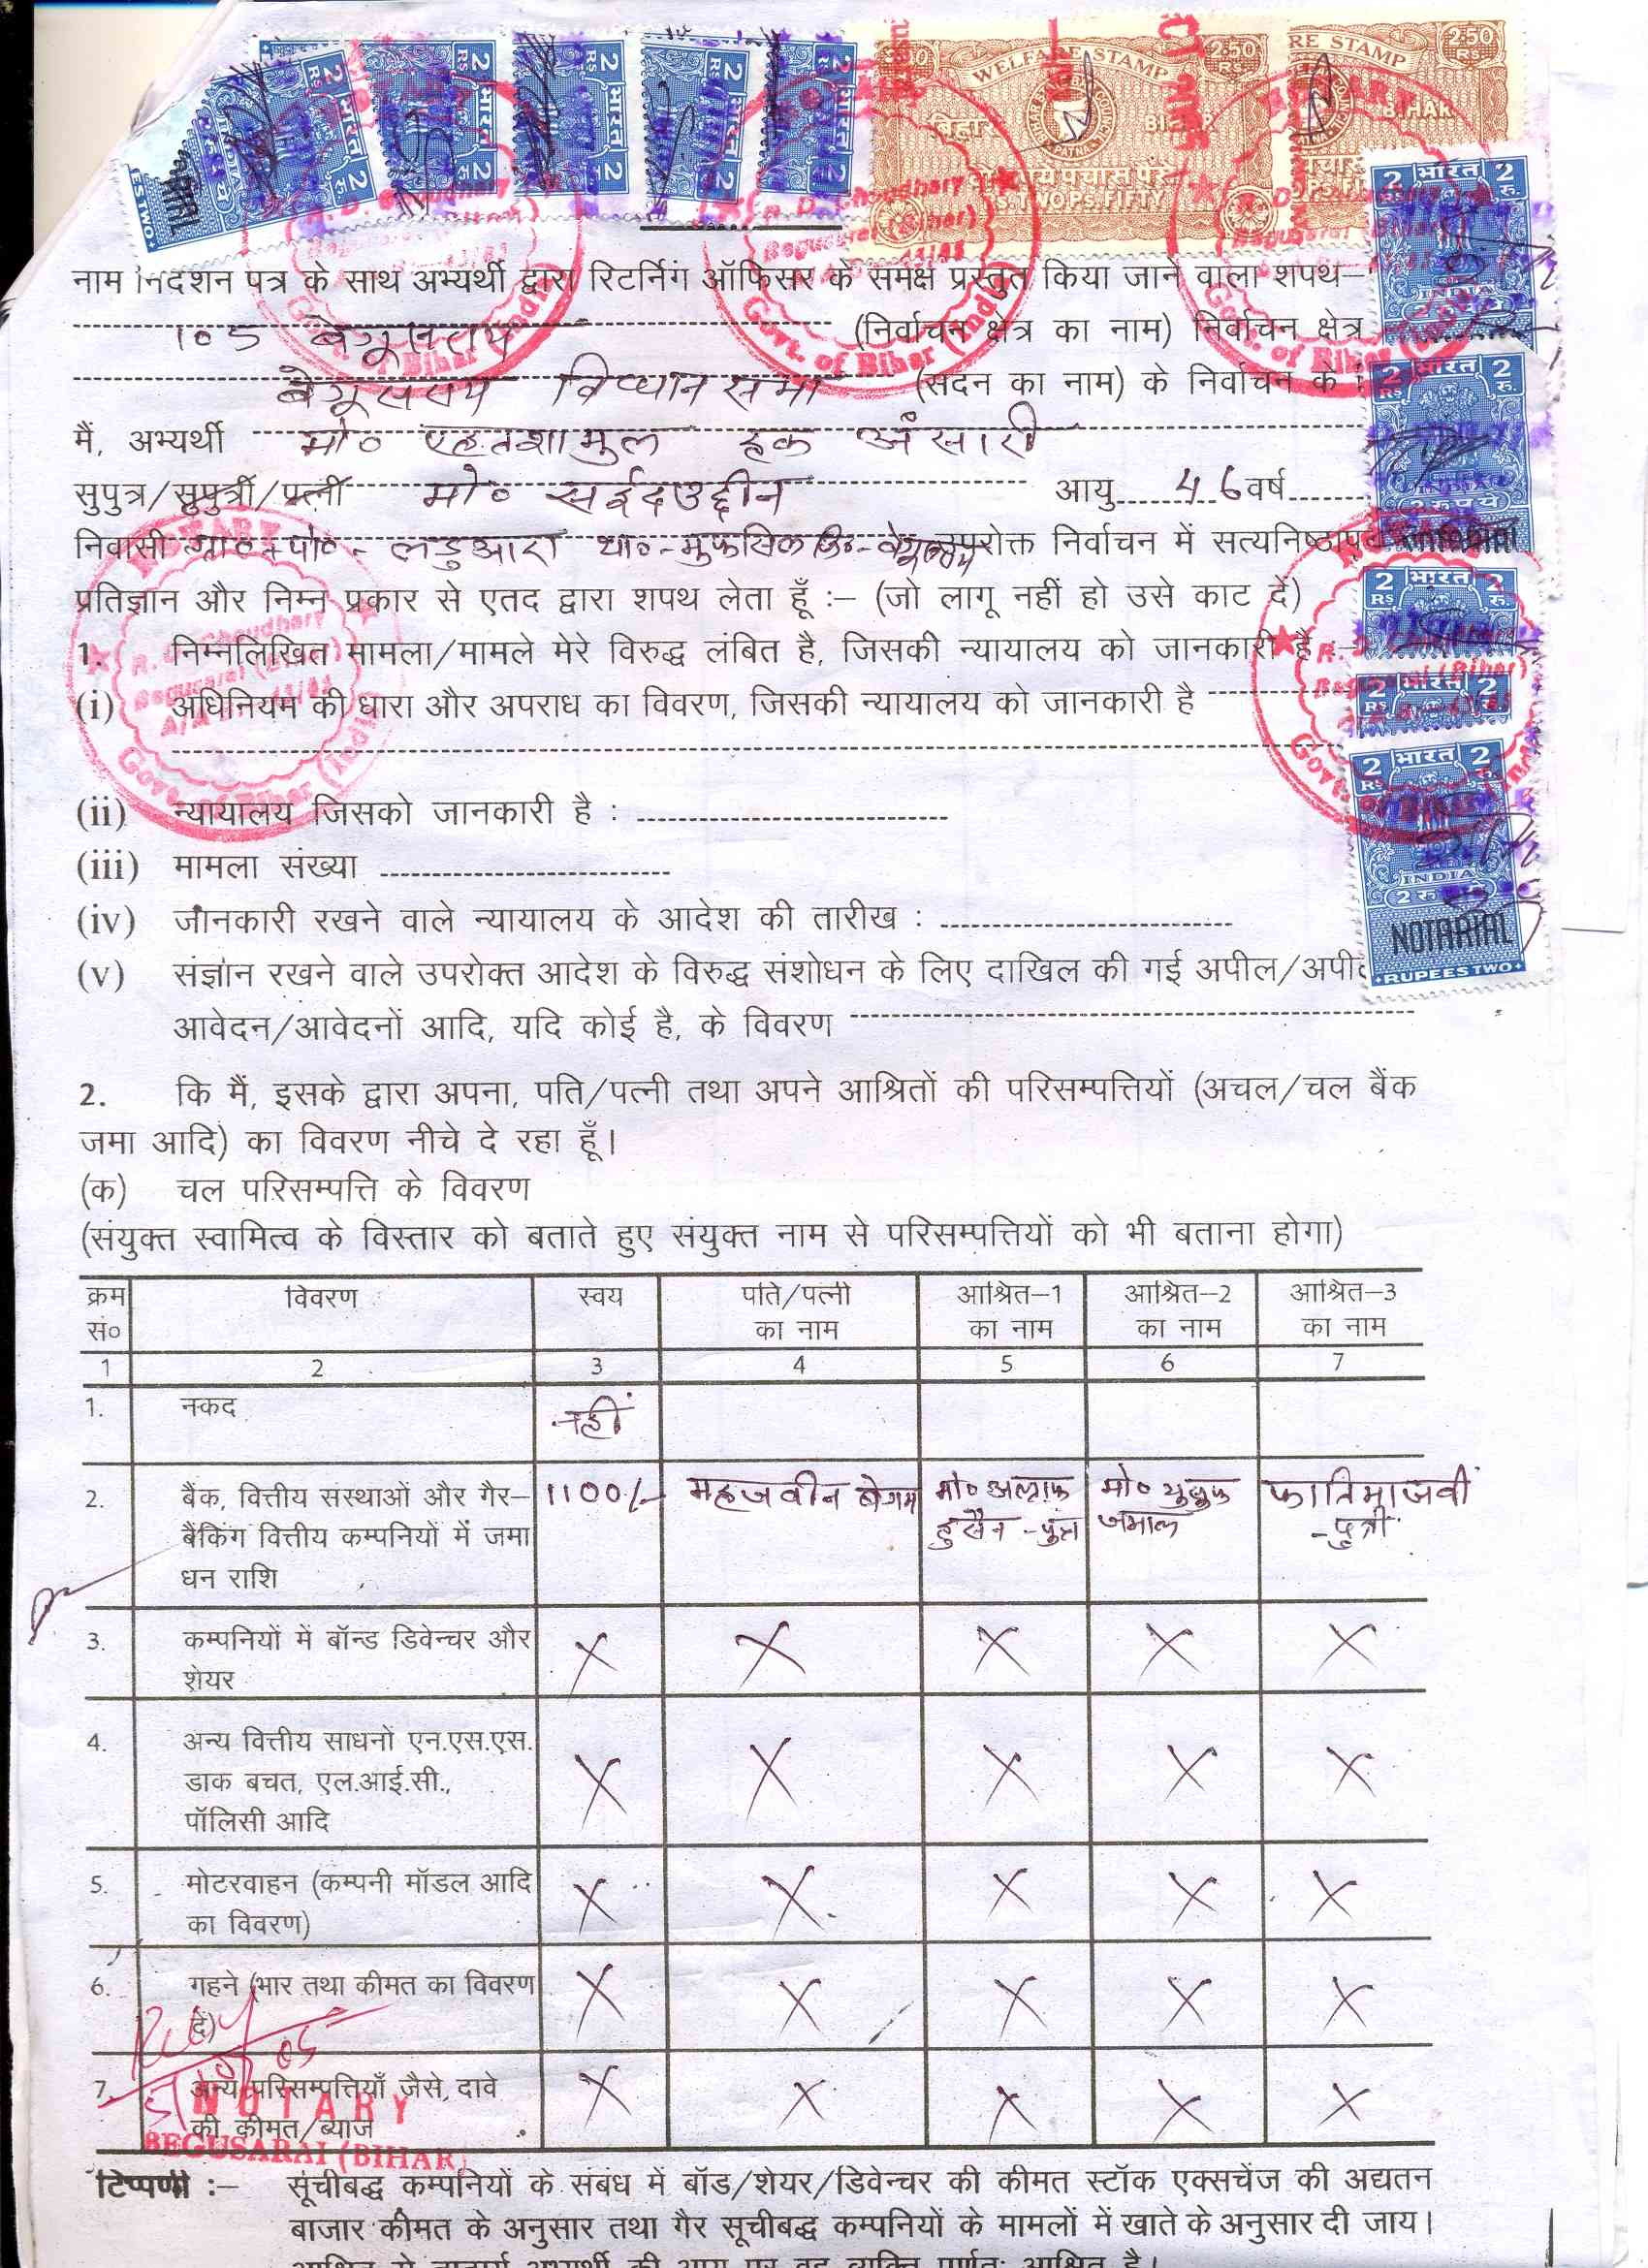 WELFARE STAMP
RE STAMP
बिहार BIHAR
BIHAR
RS.TWO Ps.FIFTY
नाम निदेशन पत्र के साथ अभ्यर्थी द्वारा रिटर्निंग ऑफिसर के समक्ष प्रस्तुत किया जाने वाला शपथ–
105 बेगूसराय (निर्वाचन क्षेत्र का नाम) निर्वाचन क्षेत्र
बेगूसराय विधान सभा (सदन का नाम) के निर्वाचन के
मैं, अभ्यर्थी मो० एहतशामुल हक अंसारी
सुपुत्र/सुपुत्री/पत्नी मो० सईदउद्दीन आयु 46 वर्ष
निवासी ग्रा०+पो०- लडुआरा था०-मुफसिल जि०-बेगूसराय उपरोक्त निर्वाचन में सत्यनिष्ठापूर्वक
प्रतिज्ञान और निम्न प्रकार से एतद द्वारा शपथ लेता हूँ :– (जो लागू नहीं हो उसे काट दें)
1. निम्नलिखित मामला/मामले मेरे विरुद्ध लंबित है, जिसकी न्यायालय को जानकारी है :–
(i) अधिनियम की धारा और अपराध का विवरण, जिसकी न्यायालय को जानकारी है
(ii) न्यायालय जिसको जानकारी है :
(iii) मामला संख्या
(iv) जानकारी रखने वाले न्यायालय के आदेश की तारीख :
(v) संज्ञान रखने वाले उपरोक्त आदेश के विरुद्ध संशोधन के लिए दाखिल की गई अपील/अपी
NOTARIAL
RUPEES TWO
आवेदन/आवेदनों आदि, यदि कोई है, के विवरण
2. कि मैं, इसके द्वारा अपना, पति/पत्नी तथा अपने आश्रितों की परिसम्पत्तियों (अचल/चल बैंक
जमा आदि) का विवरण नीचे दे रहा हूँ।
(क) चल परिसम्पत्ति के विवरण
(संयुक्त स्वामित्व के विस्तार को बताते हुए संयुक्त नाम से परिसम्पत्तियों को भी बताना होगा)
क्रम विवरण स्वय पति/पत्नी आश्रित–1 आश्रित–2 आश्रित–3
सं० का नाम का नाम का नाम का नाम
1 2 3 4 5 6 7
1. नकद नहीं
2. बैंक, वित्तीय संस्थाओं और गैर– 1100/- महजवीन बेगम मो० अल्ताफ मो० युसुफ फातिमा जवीं
बैंकिंग वित्तीय कम्पनियों में जमा हुसैन -पुत्र जमाल -पुत्री
धन राशि
3. कम्पनियों में बॉन्ड डिवेन्चर और X X X X X
शेयर
4. अन्य वित्तीय साधनों एन.एस.एस. X X X X X
डाक बचत, एल.आई.सी.,
पॉलिसी आदि
5. मोटरवाहन (कम्पनी मॉडल आदि X X X X X
का विवरण)
6. गहने (भार तथा कीमत का विवरण X X X X X
दें)
7. अन्य परिसम्पत्तियाँ जैसे, दावे X X X X X
की कीमत/ब्याज
NOTARY
BEGUSARAI (BIHAR)
टिप्पणी :– सूचीबद्ध कम्पनियों के संबंध में बॉड/शेयर/डिवेन्चर की कीमत स्टॉक एक्सचेंज की अद्यतन
बाजार कीमत के अनुसार तथा गैर सूचीबद्ध कम्पनियों के मामलों में खाते के अनुसार दी जाय।